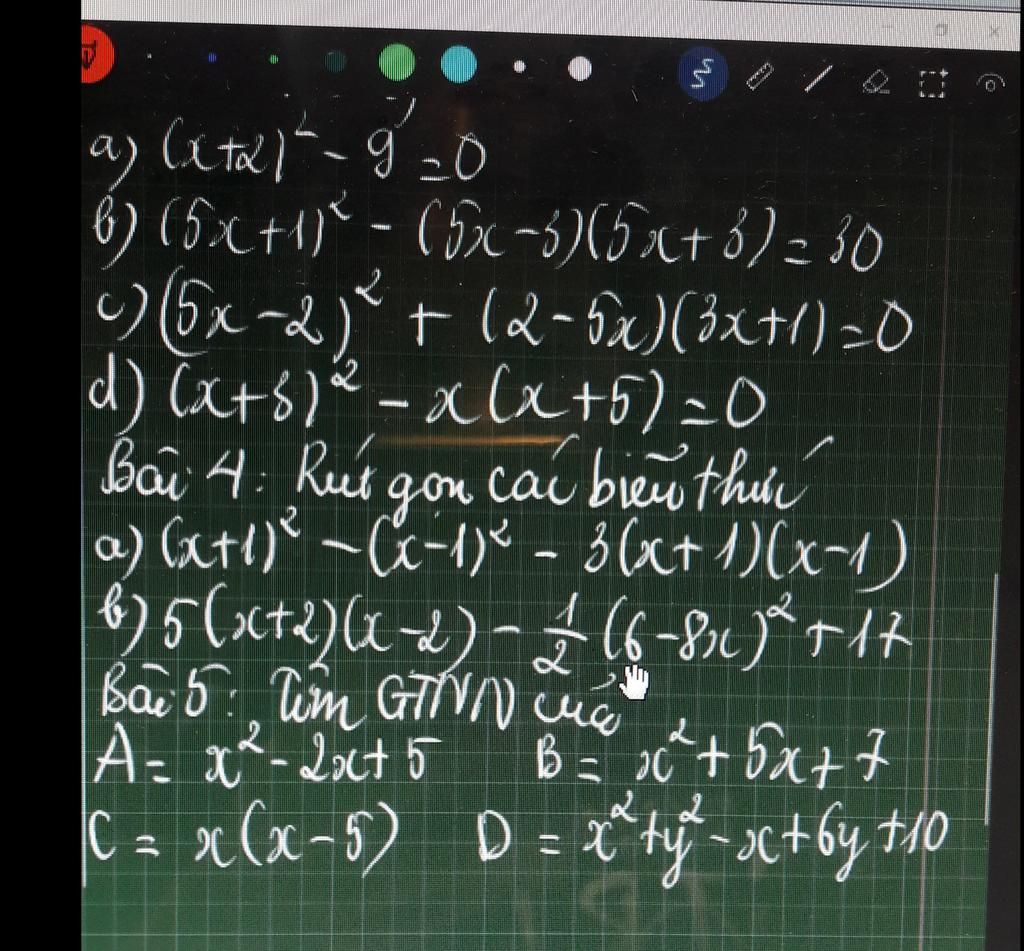 a) (x+2)² - 9 = 0
b) (5x+1)² - (5x-3)(5x+3) = 30
c) (5x-2)² + (2-5x)(3x+1) = 0
d) (x+3)² - x(x+5) = 0
Bài 4: Rút gọn các biểu thức
a) (x+1)² - (x-1)² - 3(x+1)(x-1)
b) 5(x+2)(x-2) - 1/2 (6-8x)² + 17
Bài 5: Tìm GTNN của
A = x² - 2x + 5 B = x² + 5x + 7
C = x(x-5) D = x² + y² - x + 6y + 10